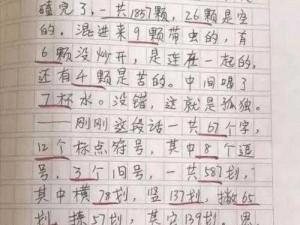 嗑完了，一共1857颗，26颗是空
的，混进来9颗带虫的，有
6颗没炒开，是连在一起的，
还有4颗是苦的。中间喝了
7杯水。没错，这就是孤独。
——刚刚这段话一共67个字，
12个标点符号，其中8个逗
号，3个句号，一共587划，
其中横78划，竖137划，撇65
划，捺57划，其它139划。